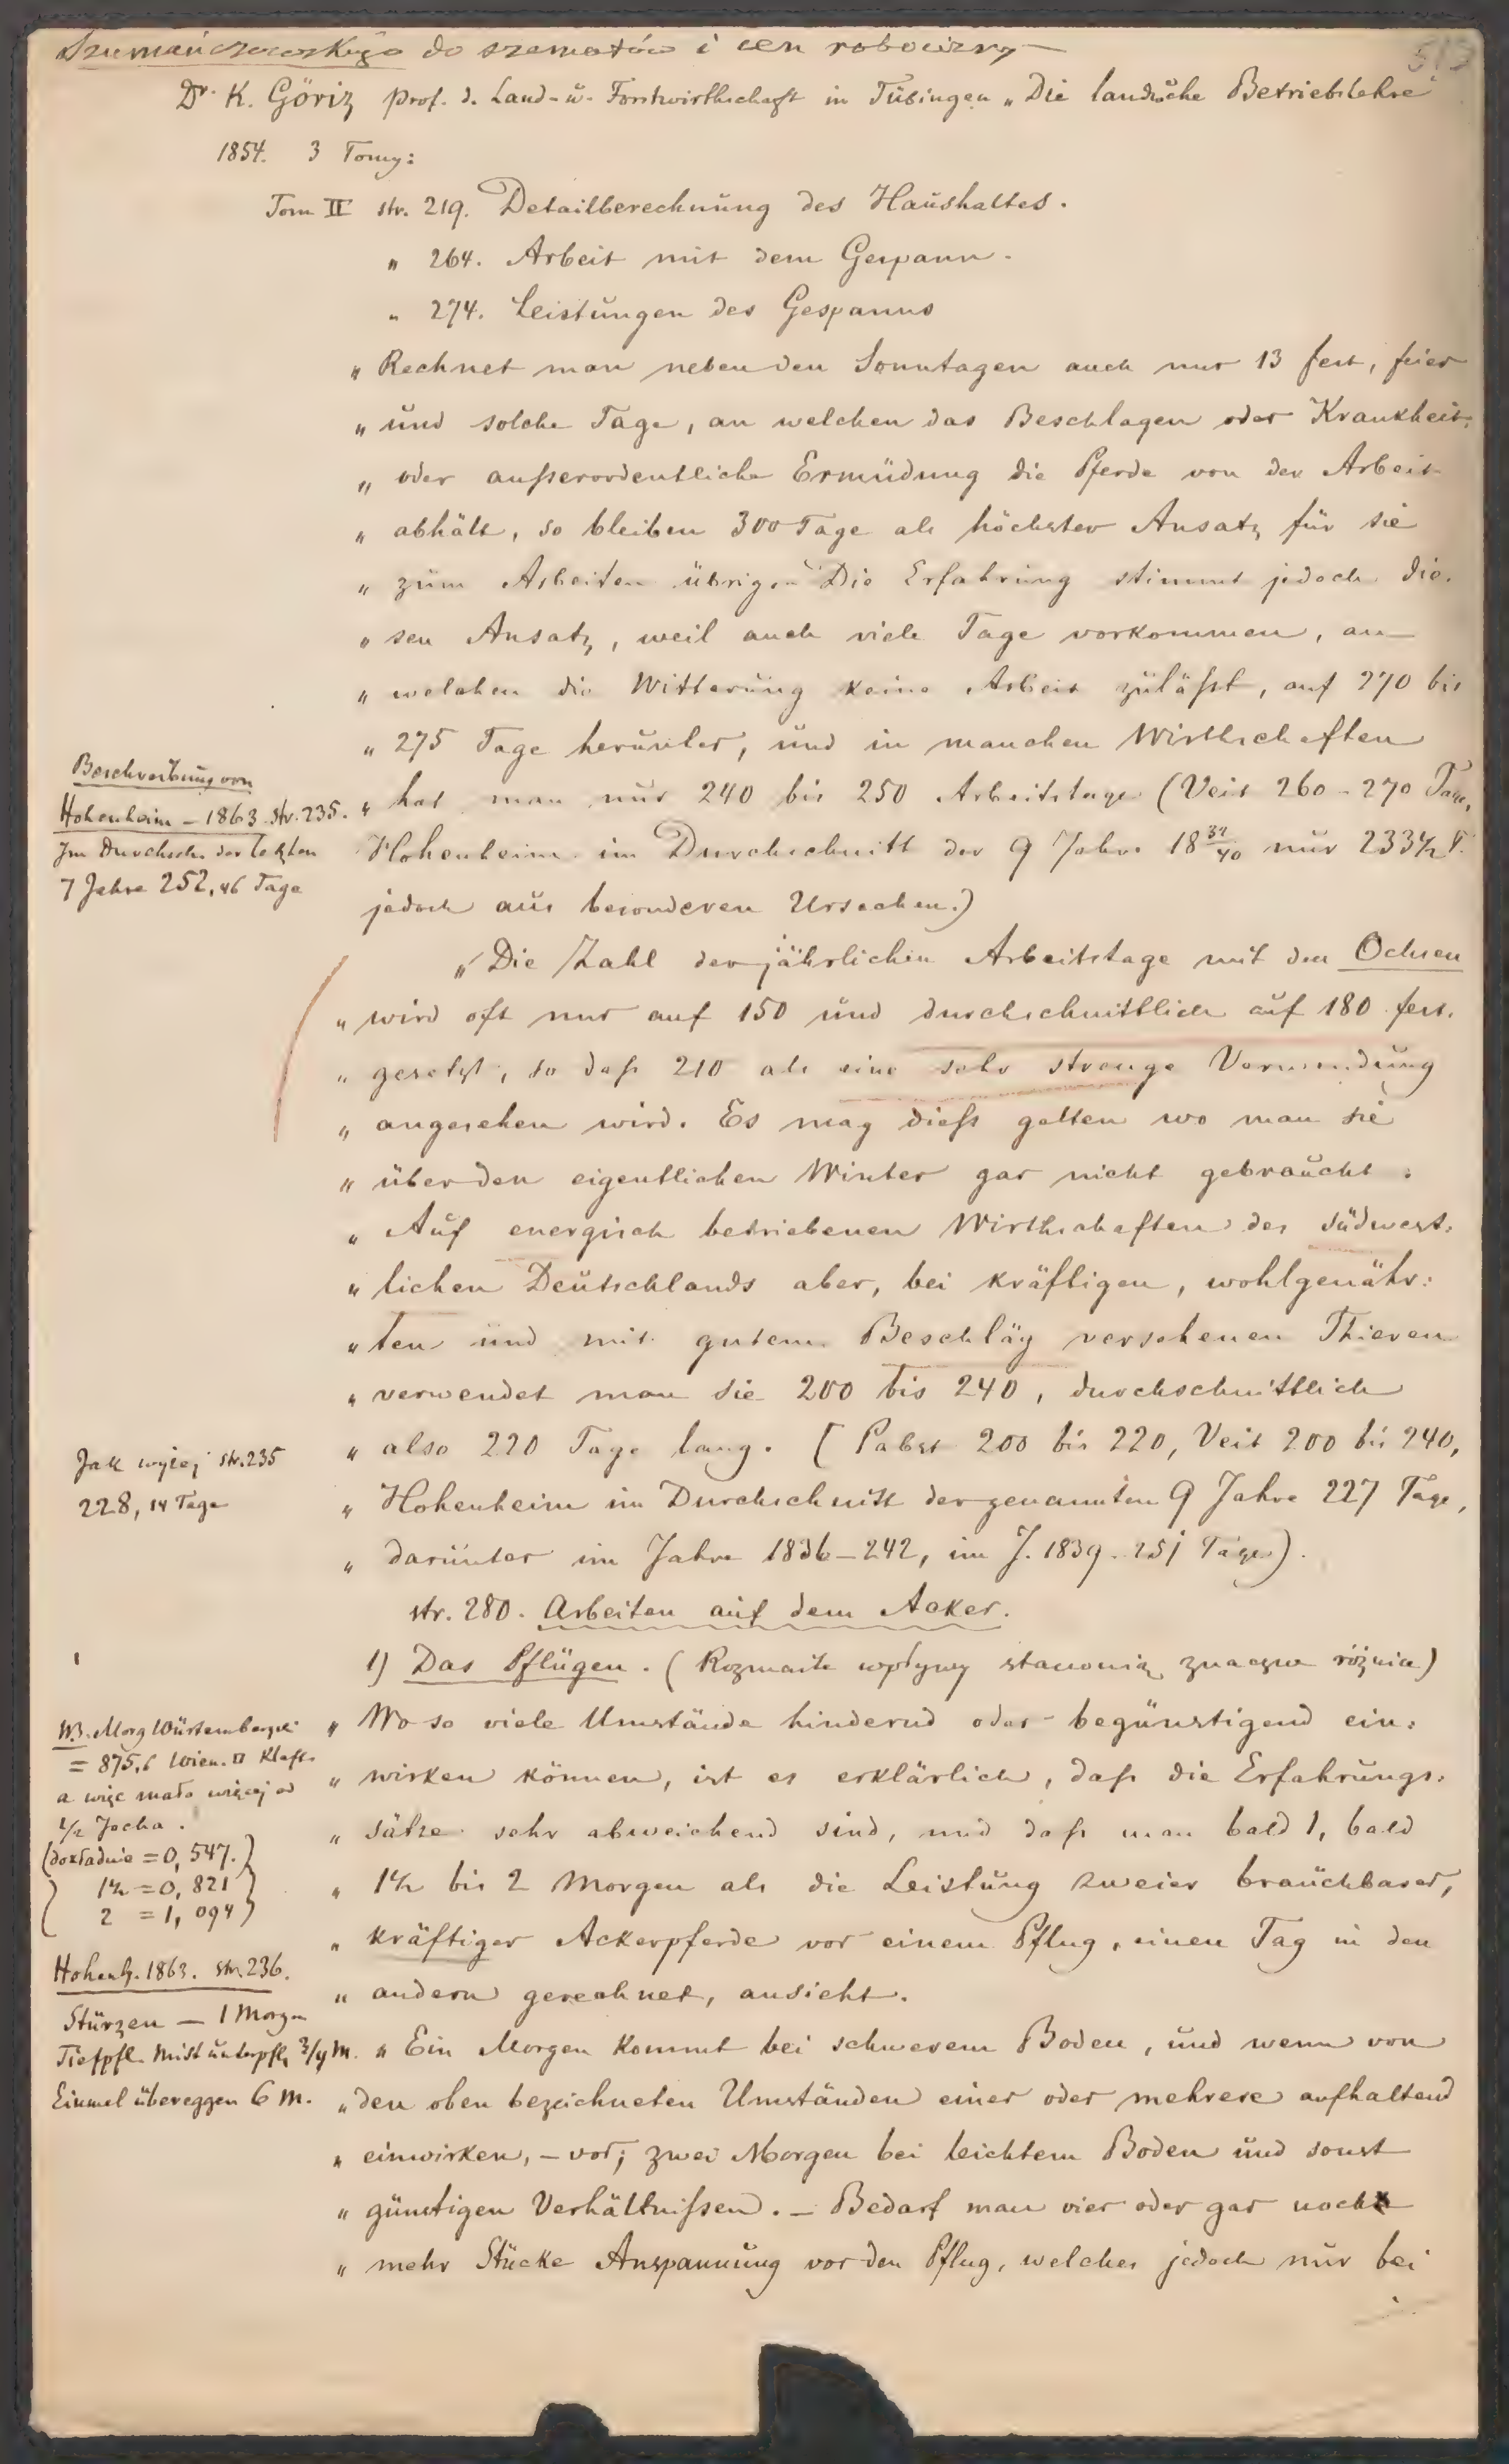 Szumańczowskiego do szematów i cen robocizny
513
Dr. K. Göriz prof. d. Land- u. Forstwirthschaft in Tübingen „Die landw. Betriebslehre"
1854. 3 Tomy:
Tom II str. 219. Detailberechnung des Haushaltes.
" 264. Arbeit mit dem Gespann.
" 274. Leistungen des Gespanns
" Rechnet man neben den Sonntagen auch nur 13 fest, feier
" und solche Tage, an welchen das Beschlagen oder Krankheit,
" oder außerordentliche Ermüdung die Pferde von der Arbeit
" abhält, so bleiben 300 Tage als höchster Ansatz für sie
" zum Arbeiten übrig. Die Erfahrung stimmt jedoch die-
" sen Ansatz, weil auch viele Tage vorkommen, an
" welchen die Witterung keine Arbeit zuläßt, auf 270 bis
" 275 Tage herunter, und in manchen Wirthschaften
Beschreibung von
Hohenheim – 1863 str. 235.
Im Durchsch. der letzten
7 Jahre 252,46 Tage
" hat man nur 240 bis 250 Arbeitstage (Veit 260-270 Tage,
Hohenheim im Durchschnitt der 9 Jahre 18 32/40 nur 233 1/2 T.
jedoch aus besonderen Ursachen.)
" Die Zahl der jährlichen Arbeitstage mit den Ochsen
" wird oft nur auf 150 und durchschnittlich auf 180 fest.
" gesetzt, so daß 210 als eine sehr strenge Verwendung
" angesehen wird. Es mag dieß gelten wo man sie
" über den eigentlichen Winter gar nicht gebraucht.
" Auf energisch betriebenen Wirthschaften des südwest-
" lichen Deutschlands aber, bei kräftigen, wohlgenähr-
" ten und mit gutem Beschläg versehenen Thieren
" verwendet man sie 200 bis 240, durchschnittlich
" also 220 Tage lang. (Pabst 200 bis 220, Veit 200 bis 240,
Jak wyżej str. 235
228,14 Tage
" Hohenheim im Durchschnitt der genannten 9 Jahre 227 Tage,
" darunter im Jahre 1836–242, im J. 1839–251 Tage).
str. 280. Arbeiten auf dem Acker.
1) Das Pflügen. (Rozmaite wpływy stanowią znaczne różnice)
" Wo so viele Umstände hindernd oder begünstigend ein-
" wirken können, ist es erklärlich, daß die Erfahrungs-
" sätze sehr abweichend sind, und daß man bald 1, bald
" 1 1/2 bis 2 Morgen als die Leistung zweier brauchbarer,
" kräftiger Ackerpferde vor einem Pflug, einen Tag in den
" andern gerechnet, ansieht.
NB. Morg Würtembergski
= 875,6 Wien. □ Klaft.
a więc mało więcej od
1/2 Jocha.
(dokładnie = 0,547.)
1 1/2 = 0,821
2 = 1,094
Hohenh. 1863. str. 236.
Stürzen – 1 Morgen
Tiefpfl. Mist unterpfl. 3/4 M.
Einmal übereggen 6 M.
" Ein Morgen kommt bei schwerem Boden, und wenn von
" den oben bezeichneten Umständen einer oder mehrere aufhaltend
" einwirken, – vor; zwei Morgen bei leichtem Boden und sonst
" günstigen Verhältnißen. – Bedarf man vier oder gar noch
" mehr Stücke Anspannung vor den Pflug, welches jedoch nur bei